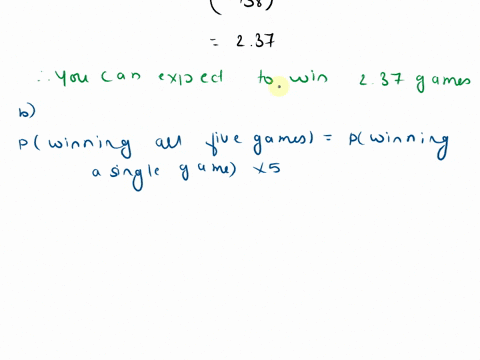 (38)
= 2.37
∴ you can expect to win 2.37 games
b)
P( winning all five games) = P( winning
a single game) x5